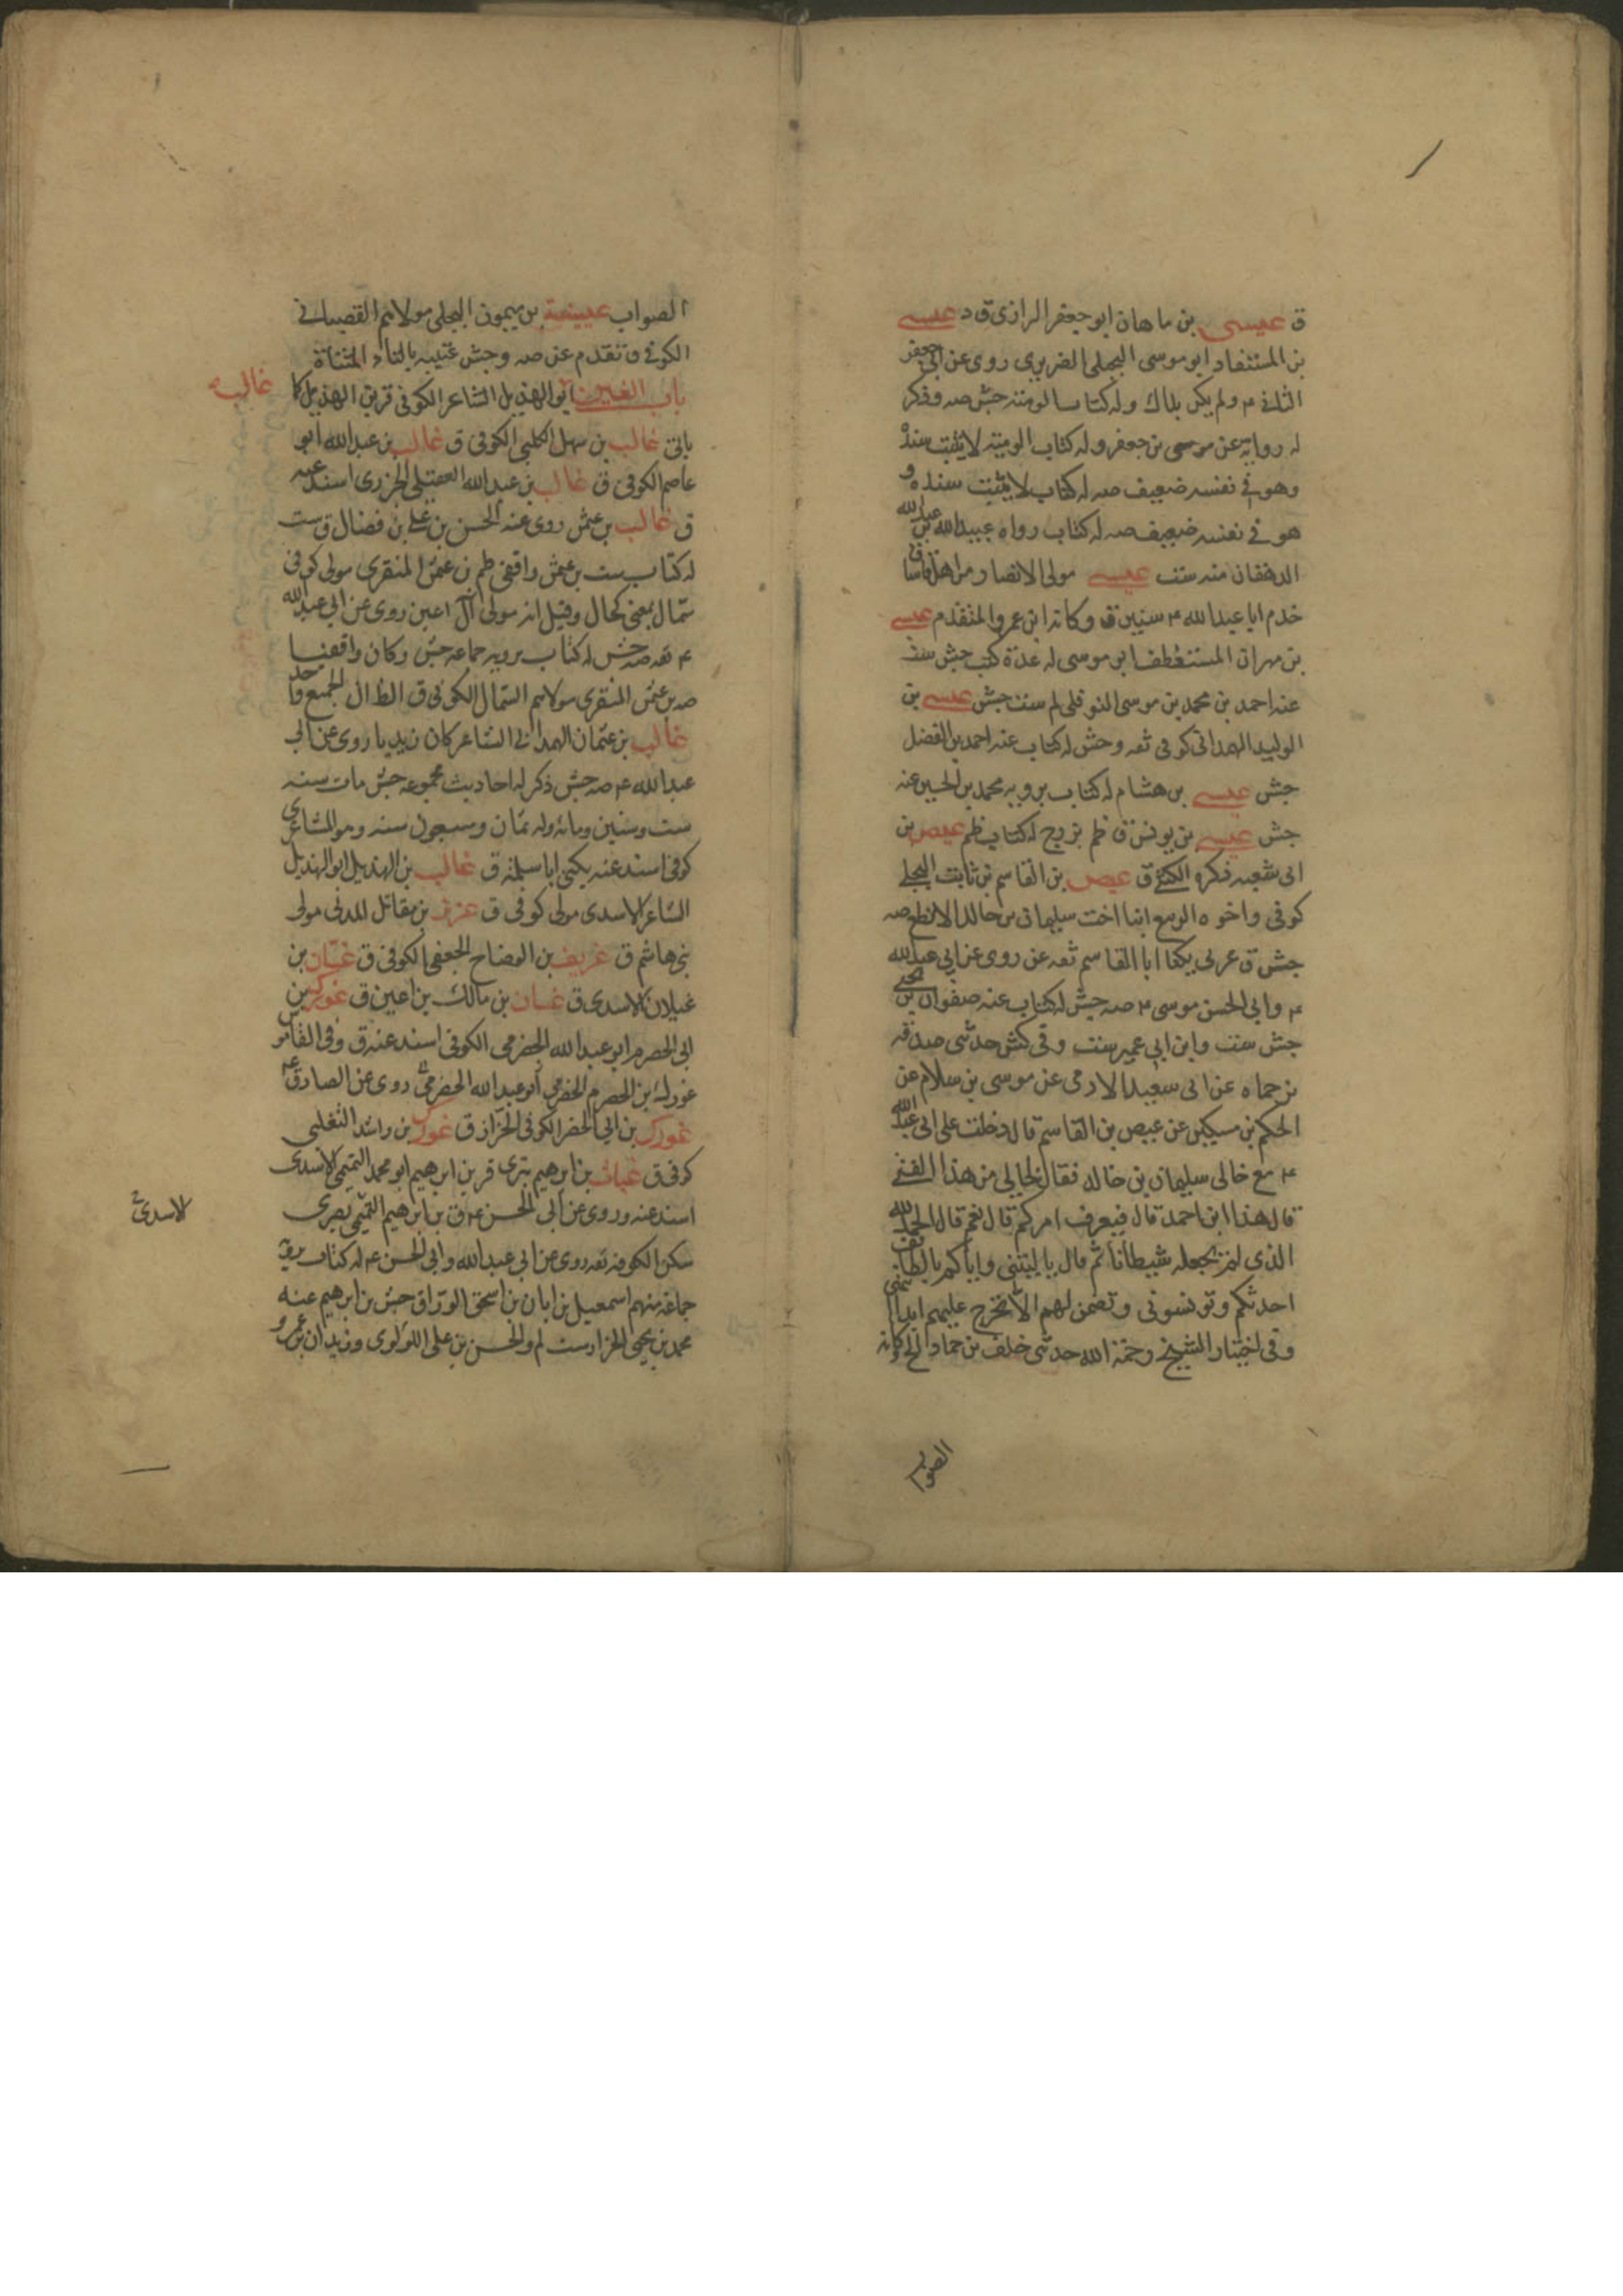 ق عيسى بن ماهان ابو جعفر الرازى ق د عيسى
بن المستفاد ابو موسى البجلى الضرير روى عن ابى جعفر
الثانى ٤ ولم يكن بذاك وله كتاب الوصيه جش صه وذكر
له رواية عن موسى بن جعفر وله كتاب الوصية لا يثبت سنده
وهو فى نفسه ضعيف صه له كتاب لا يثبت سنده و
هو فى نفسه ضعيف صه له كتاب رواه عبيد الله بن عبد الله
الدهقان منه ست عيسى مولى الانصار من اهل
خدم ابا عبد الله ٤ سنين ق وكانه ابن عمرو المتقدم عيسى
بن مهران المستعطف ابو موسى له عدة كتب جش ست
عنه احمد بن محمد بن موسى النوفلى لم ست جش عيسى بن
الوليد الهمدانى كوفى ثقه وجش له كتاب عنه احمد بن الفضل
جش عيسى بن هشام له كتاب يرويه محمد بن الحسين عنه
جش عيسى بن يونس ق ظم بزرج له كتاب ظم عيص بن
ابى شعبه ذكره الكشى ق عيص بن القاسم بن ثابت البجلى
كوفى واخوه الربيع ابنا اخت سليمان بن خالد الاقطع صه
جش ق عربى يكنا ابا القاسم ثقه عن روى عن ابى عبد الله
٤ وابى الحسن موسى ٤ صه جش له كتاب عنه صفوان بن يحيى
جش ست وابن ابى عمير ست وفى كش حدثنى صدقه
بن حماه عن ابى سعيد الادمى عن موسى بن سلام عن
الحكم بن مسكين عن عيص بن القاسم قال دخلت على ابى عبد الله
٤ مع خالى سليمان بن خالد فقال لخالى من هذا الفتى
قال هذا ابن احمد قال فيعرف امركم قال نعم قال الحمد لله
الذى لم يجعله شيطانا ثم قال يا ليتنى واياكم بالطائف
احدثكم وتونسونى وتضمن لهم الا تخرج عليهم ابدا
وفى اختيار الشيخ رحمة الله حدثنى خلف بن حماد الخ وكانه
الصواب
الصواب عيينة بن ميمون البجلى مولاهم القصبانى
الكوفى ق تقدم عن صه وجش عتيبه بالتاء المثناة
باب الغين ابو الهذيل الشاعر الكوفى قر بن الهذيل كما
غالب
ياتى غالب بن سهل الكلبى الكوفى ق غالب بن عبد الله ابو
عاصم الكوفى ق غالب بن عبد الله العقيلى الجزرى اسند عنه
ق غالب بن عثمن روى عنه الحسن بن على بن فضال ق ست
له كتاب ست بن عثمن واقفى ظم بن عثمن المنقرى مولى كوفى
سمال بمعنى كحال وقيل انه مولى آل اعين روى عن ابى عبد الله
٤ ثقه صه جش له كتاب يرويه جماعه جش وكان واقفيا
صه بن عثمن المنقرى مولاهم السمال الكوفى ق الظ ان الجميع واحد
غالب بن عثمان الهمدانى الشاعر كان زيديا روى عن ابى
عبد الله ٤ صه جش ذكر له احاديث مجموعه جش مات سنه
ست وستين ومائه وله ثمان وسبعون سنه وهو الشاعر
كوفى اسند عنه يكنى ابا سلمه ق غالب بن الهذيل ابو الهذيل
الشاعر الاسدى مولى كوفى ق عزيز بن مقاتل المدنى مولى
بنى هاشم ق غريف بن الوضاح الجعفى الكوفى ق غسان بن
غيلان الاسدى ق غسان بن مالك بن اعين ق غورك بن
ابى الحصرم ابو عبد الله الحضرمى الكوفى اسند عنه ق وفى القاموس
غورك بن الحصرم الحضرمى ابو عبد الله الحضرمى روى عن الصادق
غورك بن ابى الخضر الكوفى الخزاز ق غورك بن راشد التغلبى
كوفى ق غياث بن ابرهيم بترى قر بن ابرهيم ابو محمد التميمى الاسدى
اسند عنه وروى عن ابى الحسن ٤ ق بن ابرهيم التميمى بصرى
الاسدى
سكن الكوفه ثقه روى عن ابى عبد الله وابى الحسن ٤ له كتاب يرويه
جماعة منهم اسمعيل بن ابان بن اسحق الوراق جش بن ابرهيم عنه
محمد بن يحيى الخزاز ست لم والحسن بن على اللؤلؤى وزيدان بن عمرو